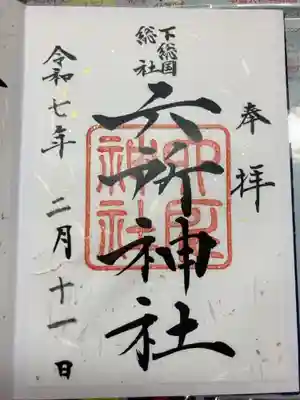 奉拝
下総国
総社
六所神社
令和七年二月十一日